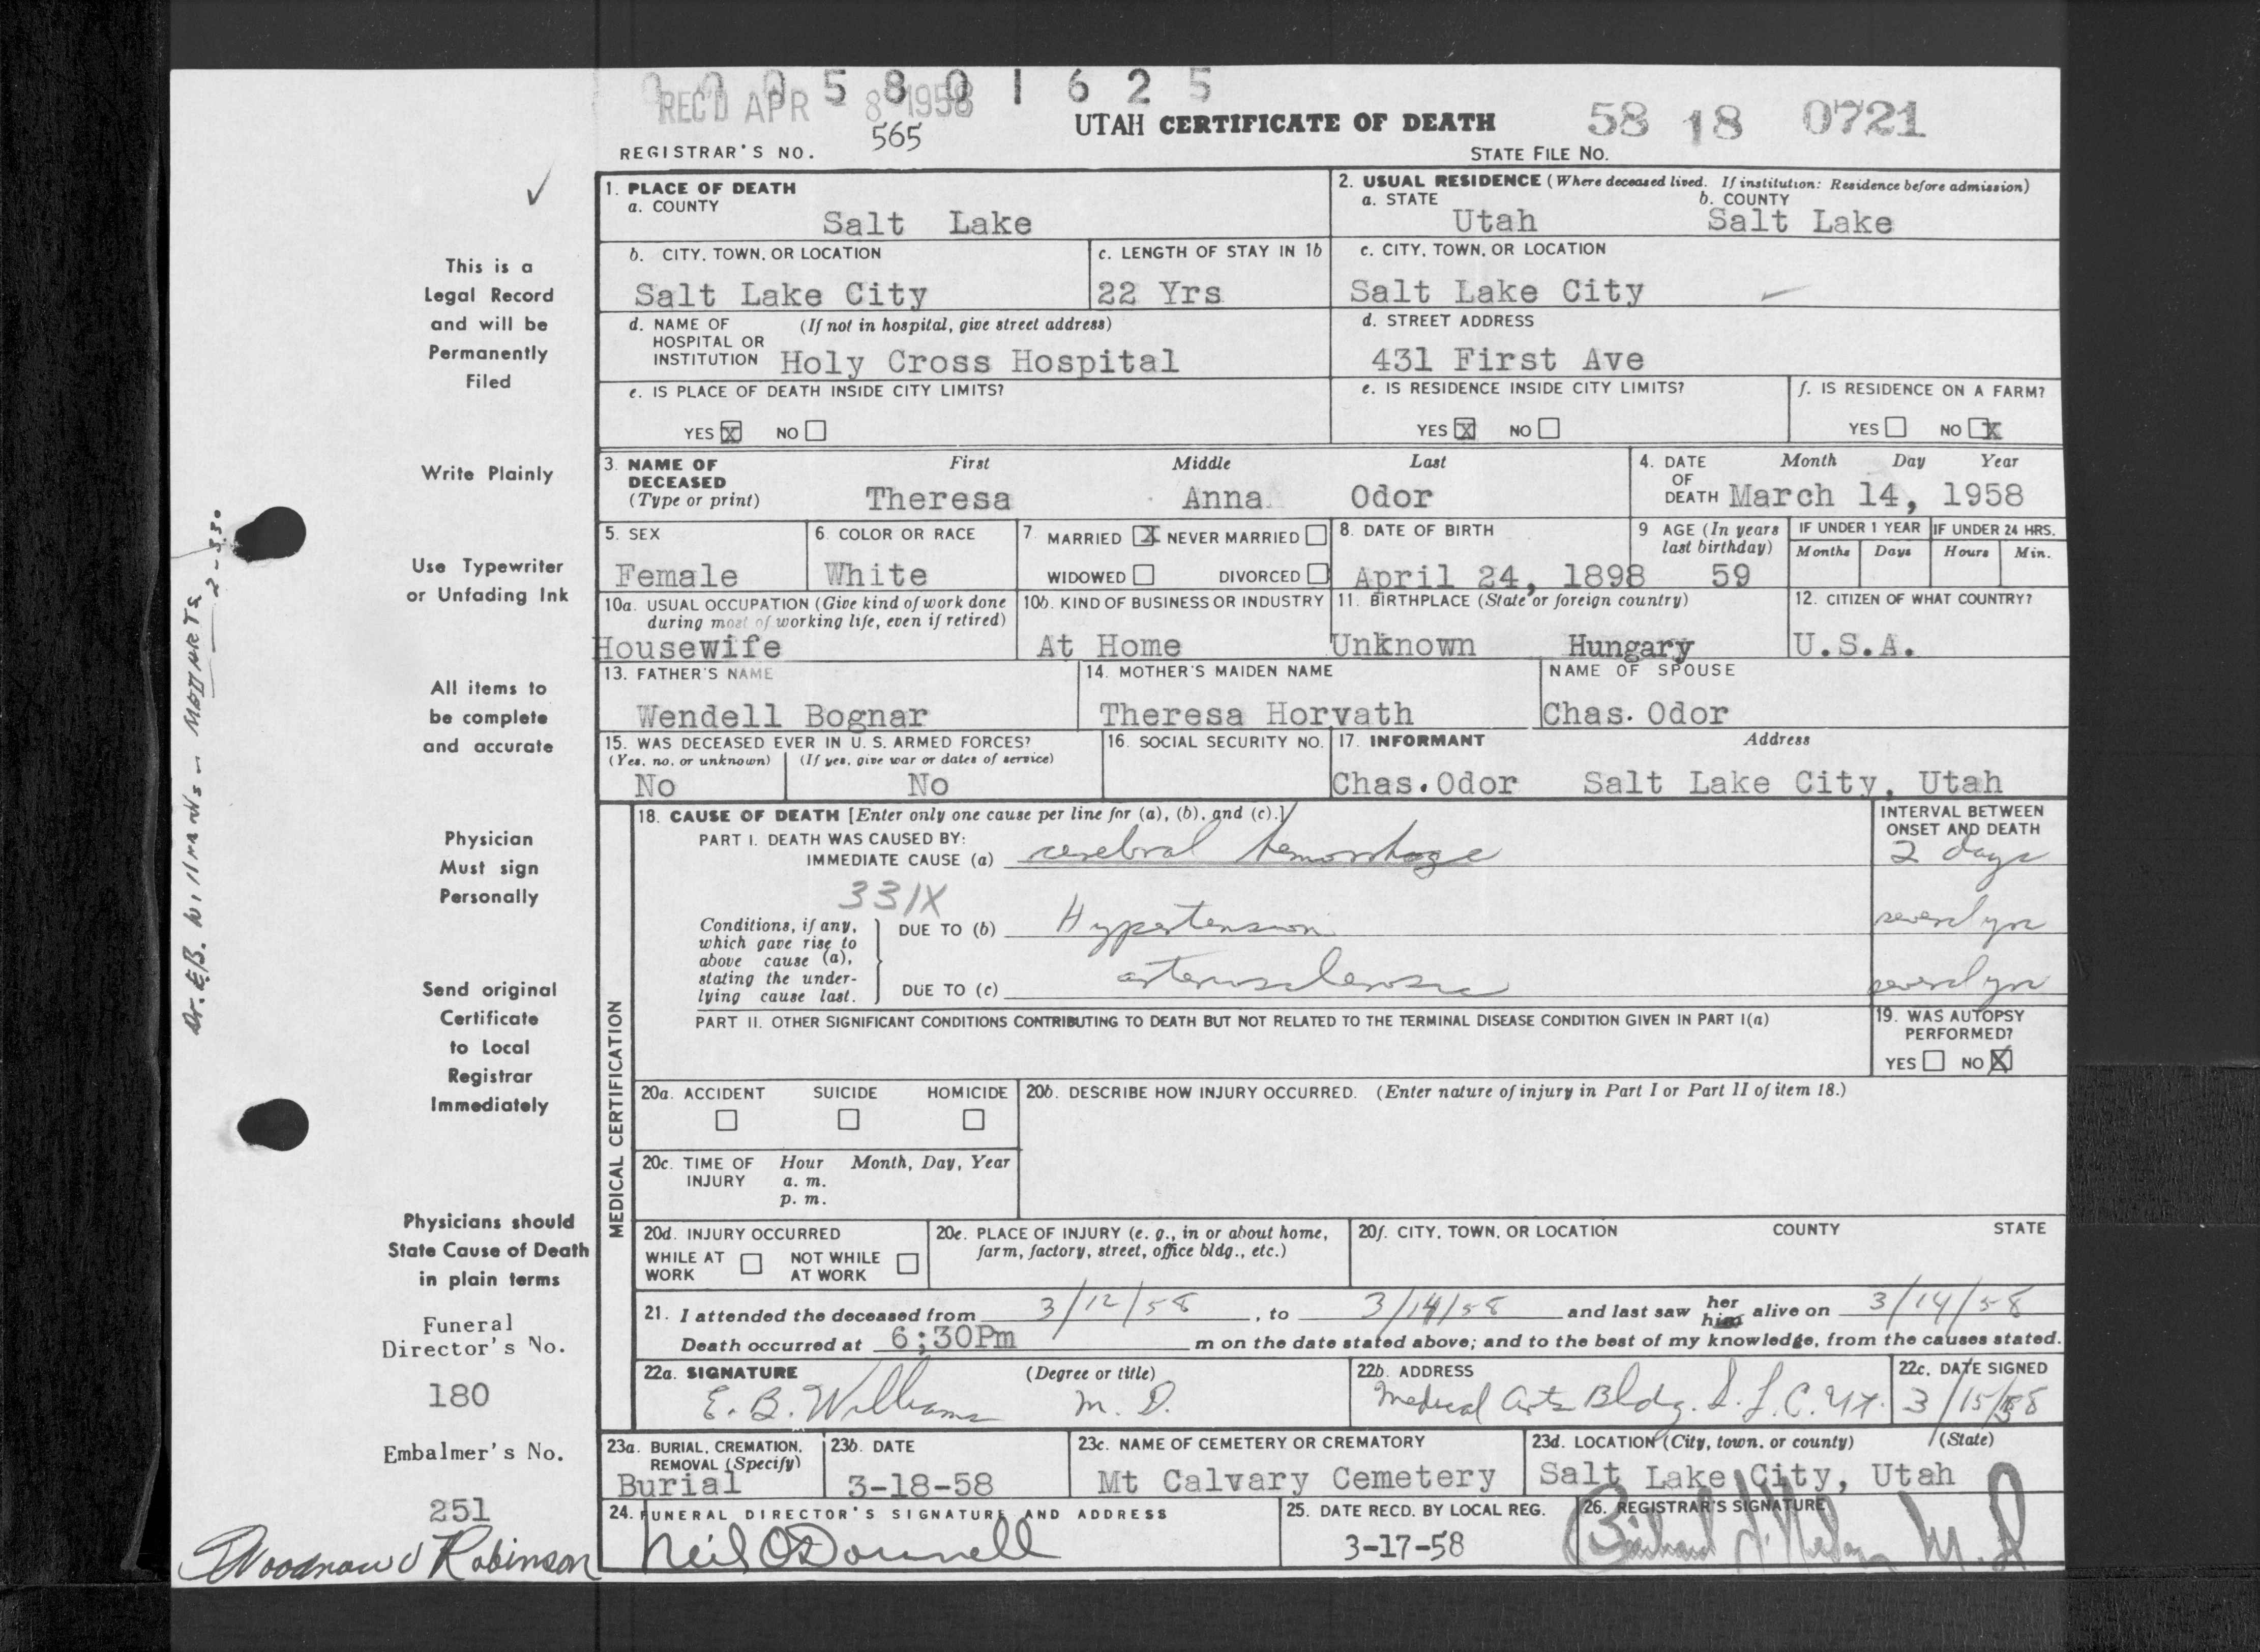 0 0 0 5 8 0 1 6 2 5
REC'D APR 8 1958
565
UTAH CERTIFICATE OF DEATH
58 18 0721
REGISTRAR'S NO.
STATE FILE NO.
This is a
Legal Record
and will be
Permanently
Filed
Write Plainly
Use Typewriter
or Unfading Ink
All items to
be complete
and accurate
Physician
Must sign
Personally
Send original
Certificate
to Local
Registrar
Immediately
Physicians should
State Cause of Death
in plain terms
Funeral
Director's No.
180
Embalmer's No.
251
Woodrow Robinson
Dr. E.B. Williams - Med Arts 2-330
1. PLACE OF DEATH
a. COUNTY
Salt Lake
2. USUAL RESIDENCE (Where deceased lived. If institution: Residence before admission)
a. STATE b. COUNTY
Utah Salt Lake
b. CITY, TOWN, OR LOCATION
Salt Lake City
c. LENGTH OF STAY IN 1b
22 Yrs
c. CITY, TOWN, OR LOCATION
Salt Lake City
d. NAME OF (If not in hospital, give street address)
HOSPITAL OR
INSTITUTION Holy Cross Hospital
d. STREET ADDRESS
431 First Ave
e. IS PLACE OF DEATH INSIDE CITY LIMITS?
YES X NO
e. IS RESIDENCE INSIDE CITY LIMITS?
YES X NO
f. IS RESIDENCE ON A FARM?
YES NO X
3. NAME OF First Middle Last
DECEASED
(Type or print) Theresa Anna Odor
4. DATE Month Day Year
OF
DEATH March 14, 1958
5. SEX
Female
6. COLOR OR RACE
White
7. MARRIED X NEVER MARRIED
WIDOWED DIVORCED
8. DATE OF BIRTH
April 24, 1898
9 AGE (In years
last birthday)
59
IF UNDER 1 YEAR IF UNDER 24 HRS.
Months Days Hours Min.
10a. USUAL OCCUPATION (Give kind of work done
during most of working life, even if retired)
Housewife
10b. KIND OF BUSINESS OR INDUSTRY
At Home
11. BIRTHPLACE (State or foreign country)
Unknown Hungary
12. CITIZEN OF WHAT COUNTRY?
U.S.A.
13. FATHER'S NAME
Wendell Bognar
14. MOTHER'S MAIDEN NAME
Theresa Horvath
NAME OF SPOUSE
Chas. Odor
15. WAS DECEASED EVER IN U. S. ARMED FORCES?
(Yes, no, or unknown) (If yes, give war or dates of service)
No No
16. SOCIAL SECURITY NO.
17. INFORMANT Address
Chas. Odor Salt Lake City, Utah
MEDICAL CERTIFICATION
18. CAUSE OF DEATH [Enter only one cause per line for (a), (b), and (c).]
PART I. DEATH WAS CAUSED BY:
IMMEDIATE CAUSE (a) cerebral hemorrhage
INTERVAL BETWEEN
ONSET AND DEATH
2 days
331X
Conditions, if any,
which gave rise to
above cause (a),
stating the under-
lying cause last.
DUE TO (b) Hypertension
several yrs
DUE TO (c) arteriosclerosis
several yrs
PART II. OTHER SIGNIFICANT CONDITIONS CONTRIBUTING TO DEATH BUT NOT RELATED TO THE TERMINAL DISEASE CONDITION GIVEN IN PART I(a)
19. WAS AUTOPSY
PERFORMED?
YES NO X
20a. ACCIDENT SUICIDE HOMICIDE
20b. DESCRIBE HOW INJURY OCCURRED. (Enter nature of injury in Part I or Part II of item 18.)
20c. TIME OF Hour Month, Day, Year
INJURY a. m.
p. m.
20d. INJURY OCCURRED
WHILE AT NOT WHILE
WORK AT WORK
20e. PLACE OF INJURY (e. g., in or about home,
farm, factory, street, office bldg., etc.)
20f. CITY, TOWN, OR LOCATION COUNTY STATE
21. I attended the deceased from 3/12/58, to 3/14/58 and last saw her him alive on 3/14/58
Death occurred at 6;30Pm m on the date stated above; and to the best of my knowledge, from the causes stated.
22a. SIGNATURE (Degree or title)
E. B. Williams M. D.
22b. ADDRESS
Medical Arts Bldg. S. L. C. Ut.
22c. DATE SIGNED
3/15/58
23a. BURIAL, CREMATION,
REMOVAL (Specify)
Burial
23b. DATE
3-18-58
23c. NAME OF CEMETERY OR CREMATORY
Mt Calvary Cemetery
23d. LOCATION (City, town, or county) (State)
Salt Lake City, Utah
24. FUNERAL DIRECTOR'S SIGNATURE AND ADDRESS
Neil O'Donnell
25. DATE RECD. BY LOCAL REG.
3-17-58
26. REGISTRAR'S SIGNATURE
M.D